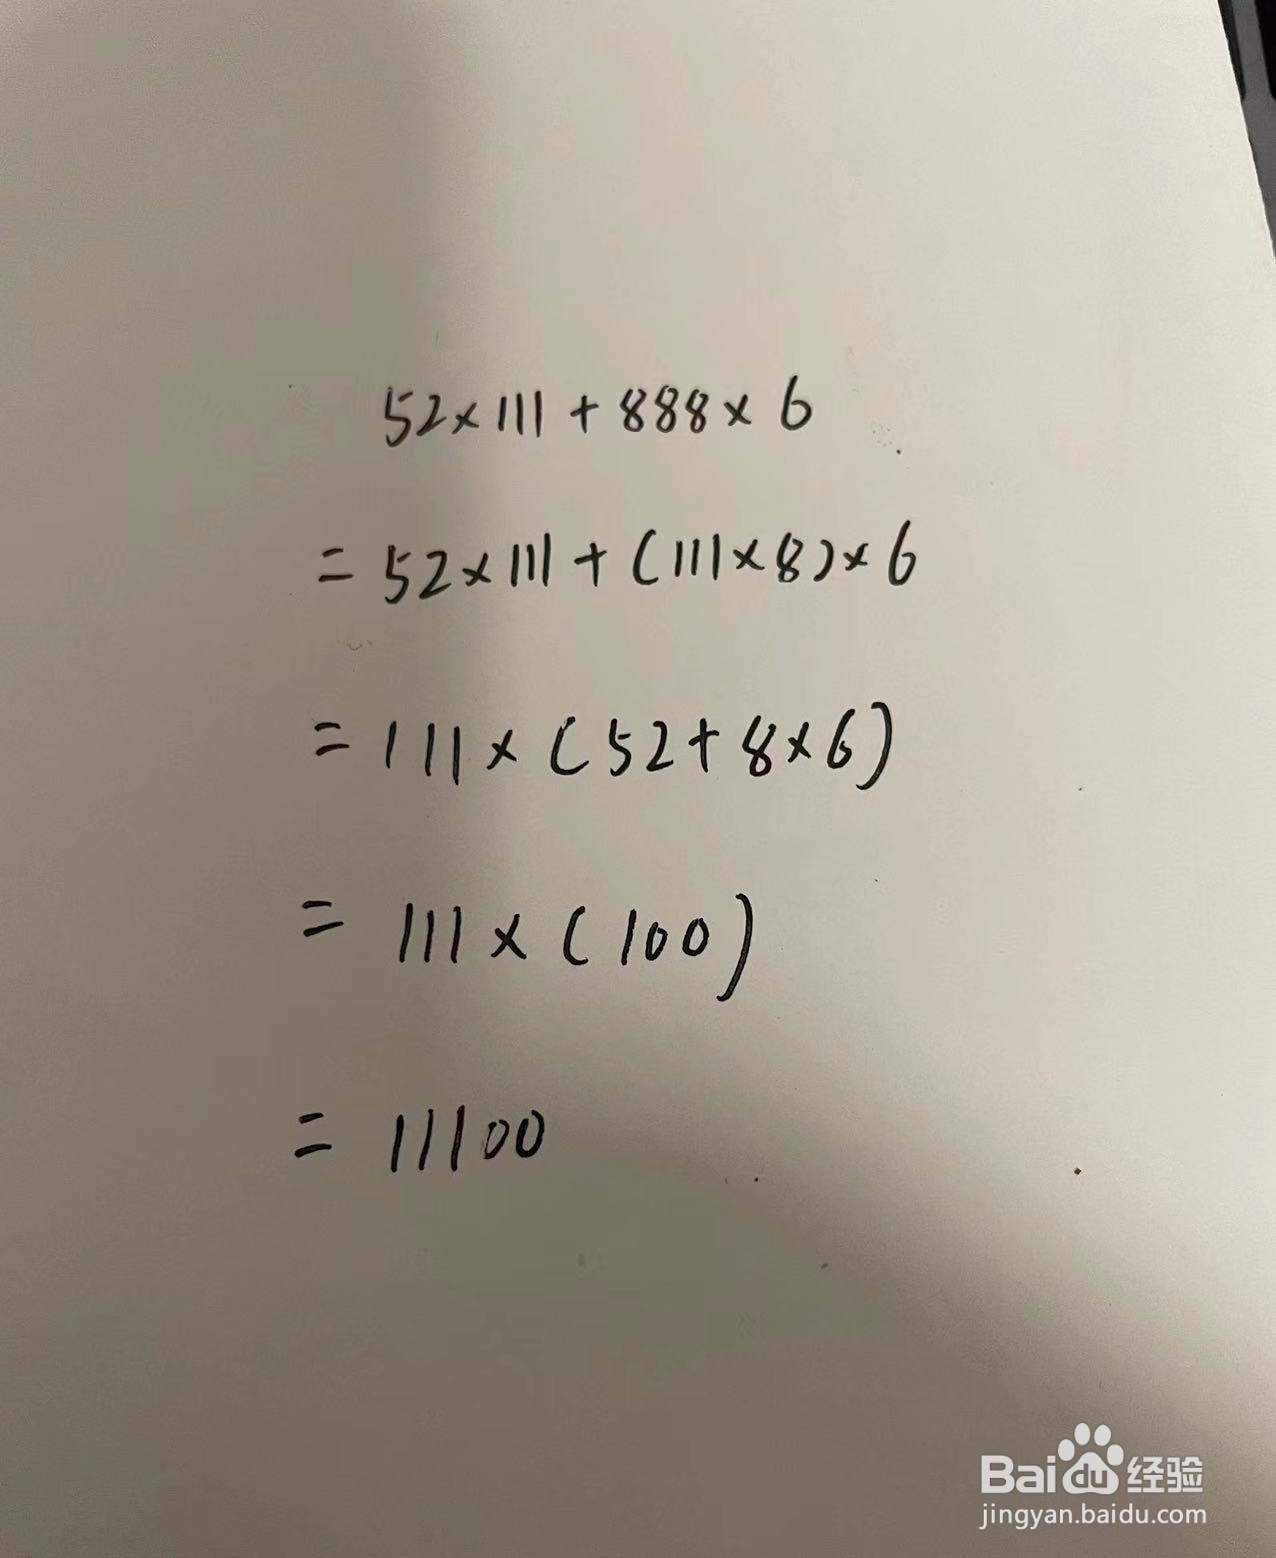 52×111+888×6
=52×111+(111×8)×6
=111×(52+8×6)
=111×(100)
=11100
Bai du 经验
jingyan.baidu.com